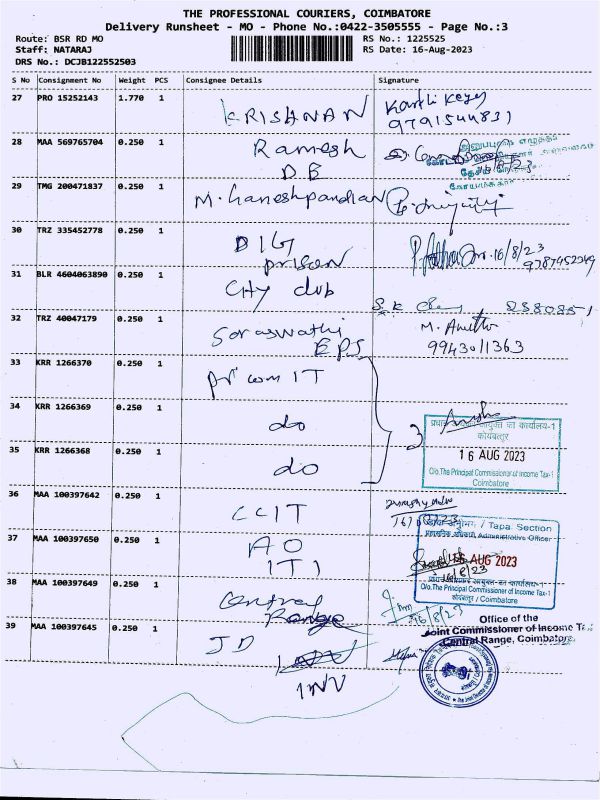 THE PROFESSIONAL COURIERS, COIMBATORE
Delivery Runsheet - MO - Phone No.:0422-3505555 - Page No.:3
Route: BSR RD MO
RS No.: 1225525
Staff: NATARAJ
RS Date: 16-Aug-2023
DRS No.: DCJB122552503
S No Consignment No Weight PCS Consignee Details Signature
27 PRO 15252143 1.770 1 KRISHNAN
9791544831
28 MAA 569765704 0.250 1 Ramesh
DB
29 TMG 200471837 0.250 1 M. Ganeshpandian
30 TRZ 335452778 0.250 1 DIG 16/8/23
prison
31 BLR 4604063890 0.250 1 City club
32 TRZ 40047179 0.250 1 Saraswathi
EPS 9943011363
33 KRR 1266370 0.250 1 Pr com IT
34 KRR 1266369 0.250 1 do
3
प्रधान आयकर आयुक्त का कार्यालय-1
कोयंबत्तूर
35 KRR 1266368 0.250 1 do 16 AUG 2023
O/o.The Principal Commissioner of Income Tax-1
Coimbatore
36 MAA 100397642 0.250 1 CCIT
/ Tapal Section
Administrative Officer
37 MAA 100397650 0.250 1 AO
ITI
AUG 2023
O/o.The Principal Commissioner of Income Tax-1
/ Coimbatore
38 MAA 100397649 0.250 1 Central
Range 16/8/23
Office of the
Joint Commissioner of Income Ta
Central Range, Coimbatore
39 MAA 100397645 0.250 1 JD
INV